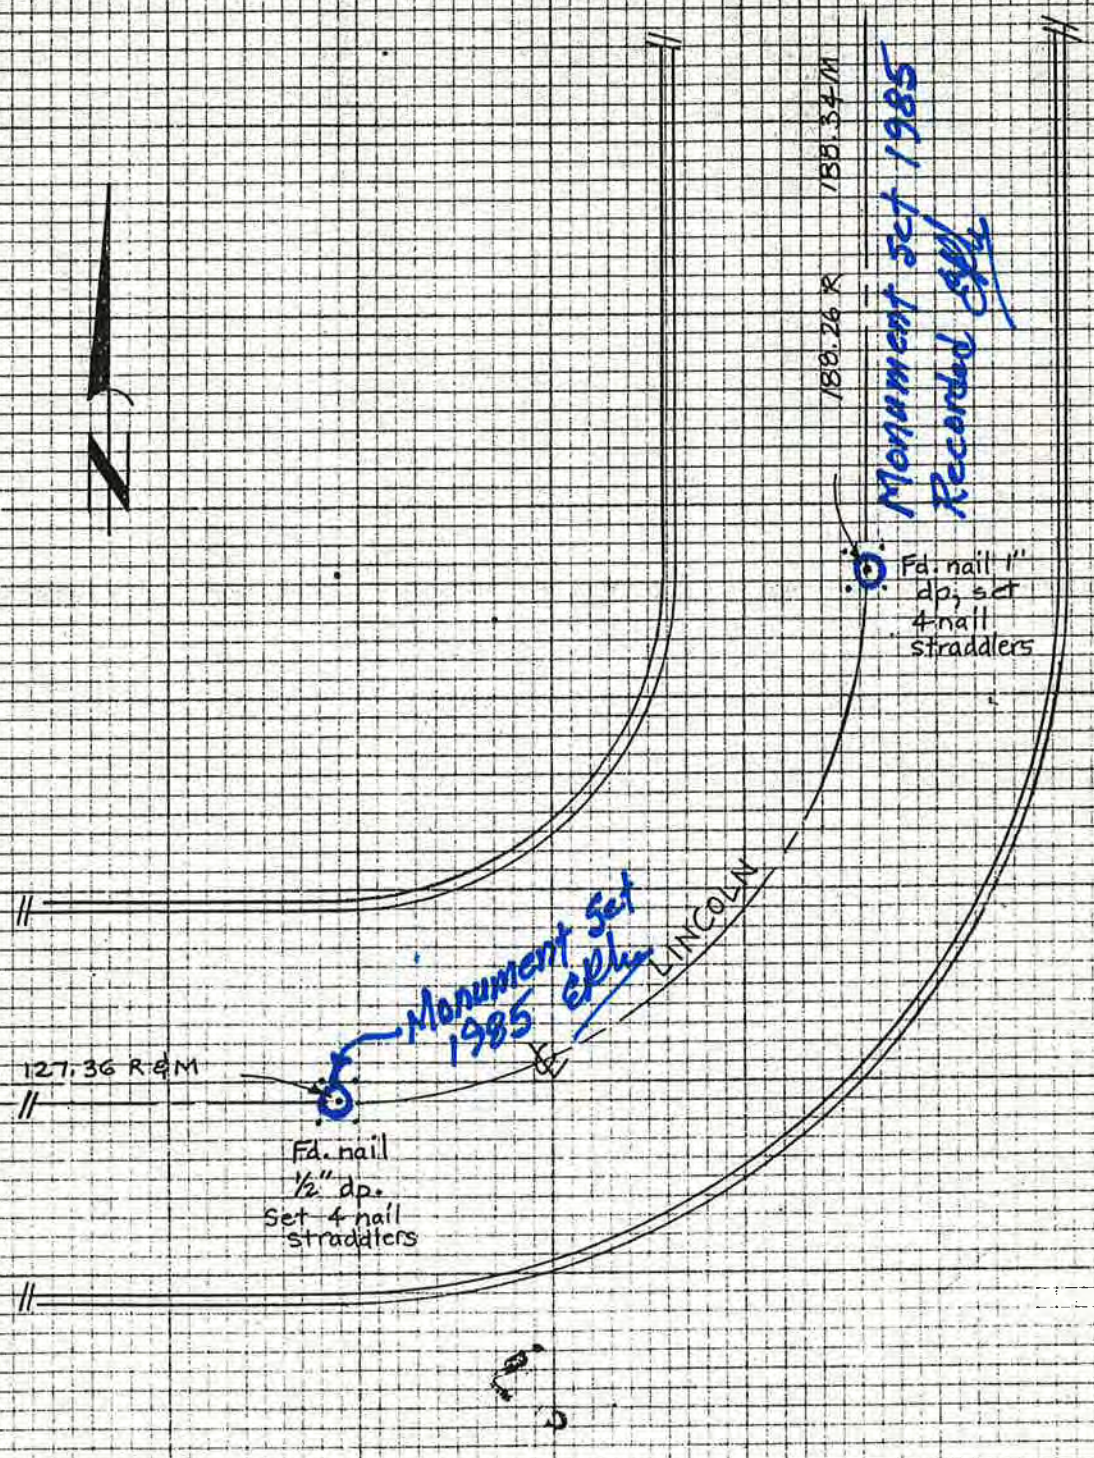 188.26 R 188.34 M
Monument Set 1985
Recorded
N
Fd. nail 1"
dp; set
4-nail
straddlers
LINCOLN
Monument Set
1985
℄
127.36 R & M
Fd. nail
1/2" dp.
Set 4 nail
straddlers